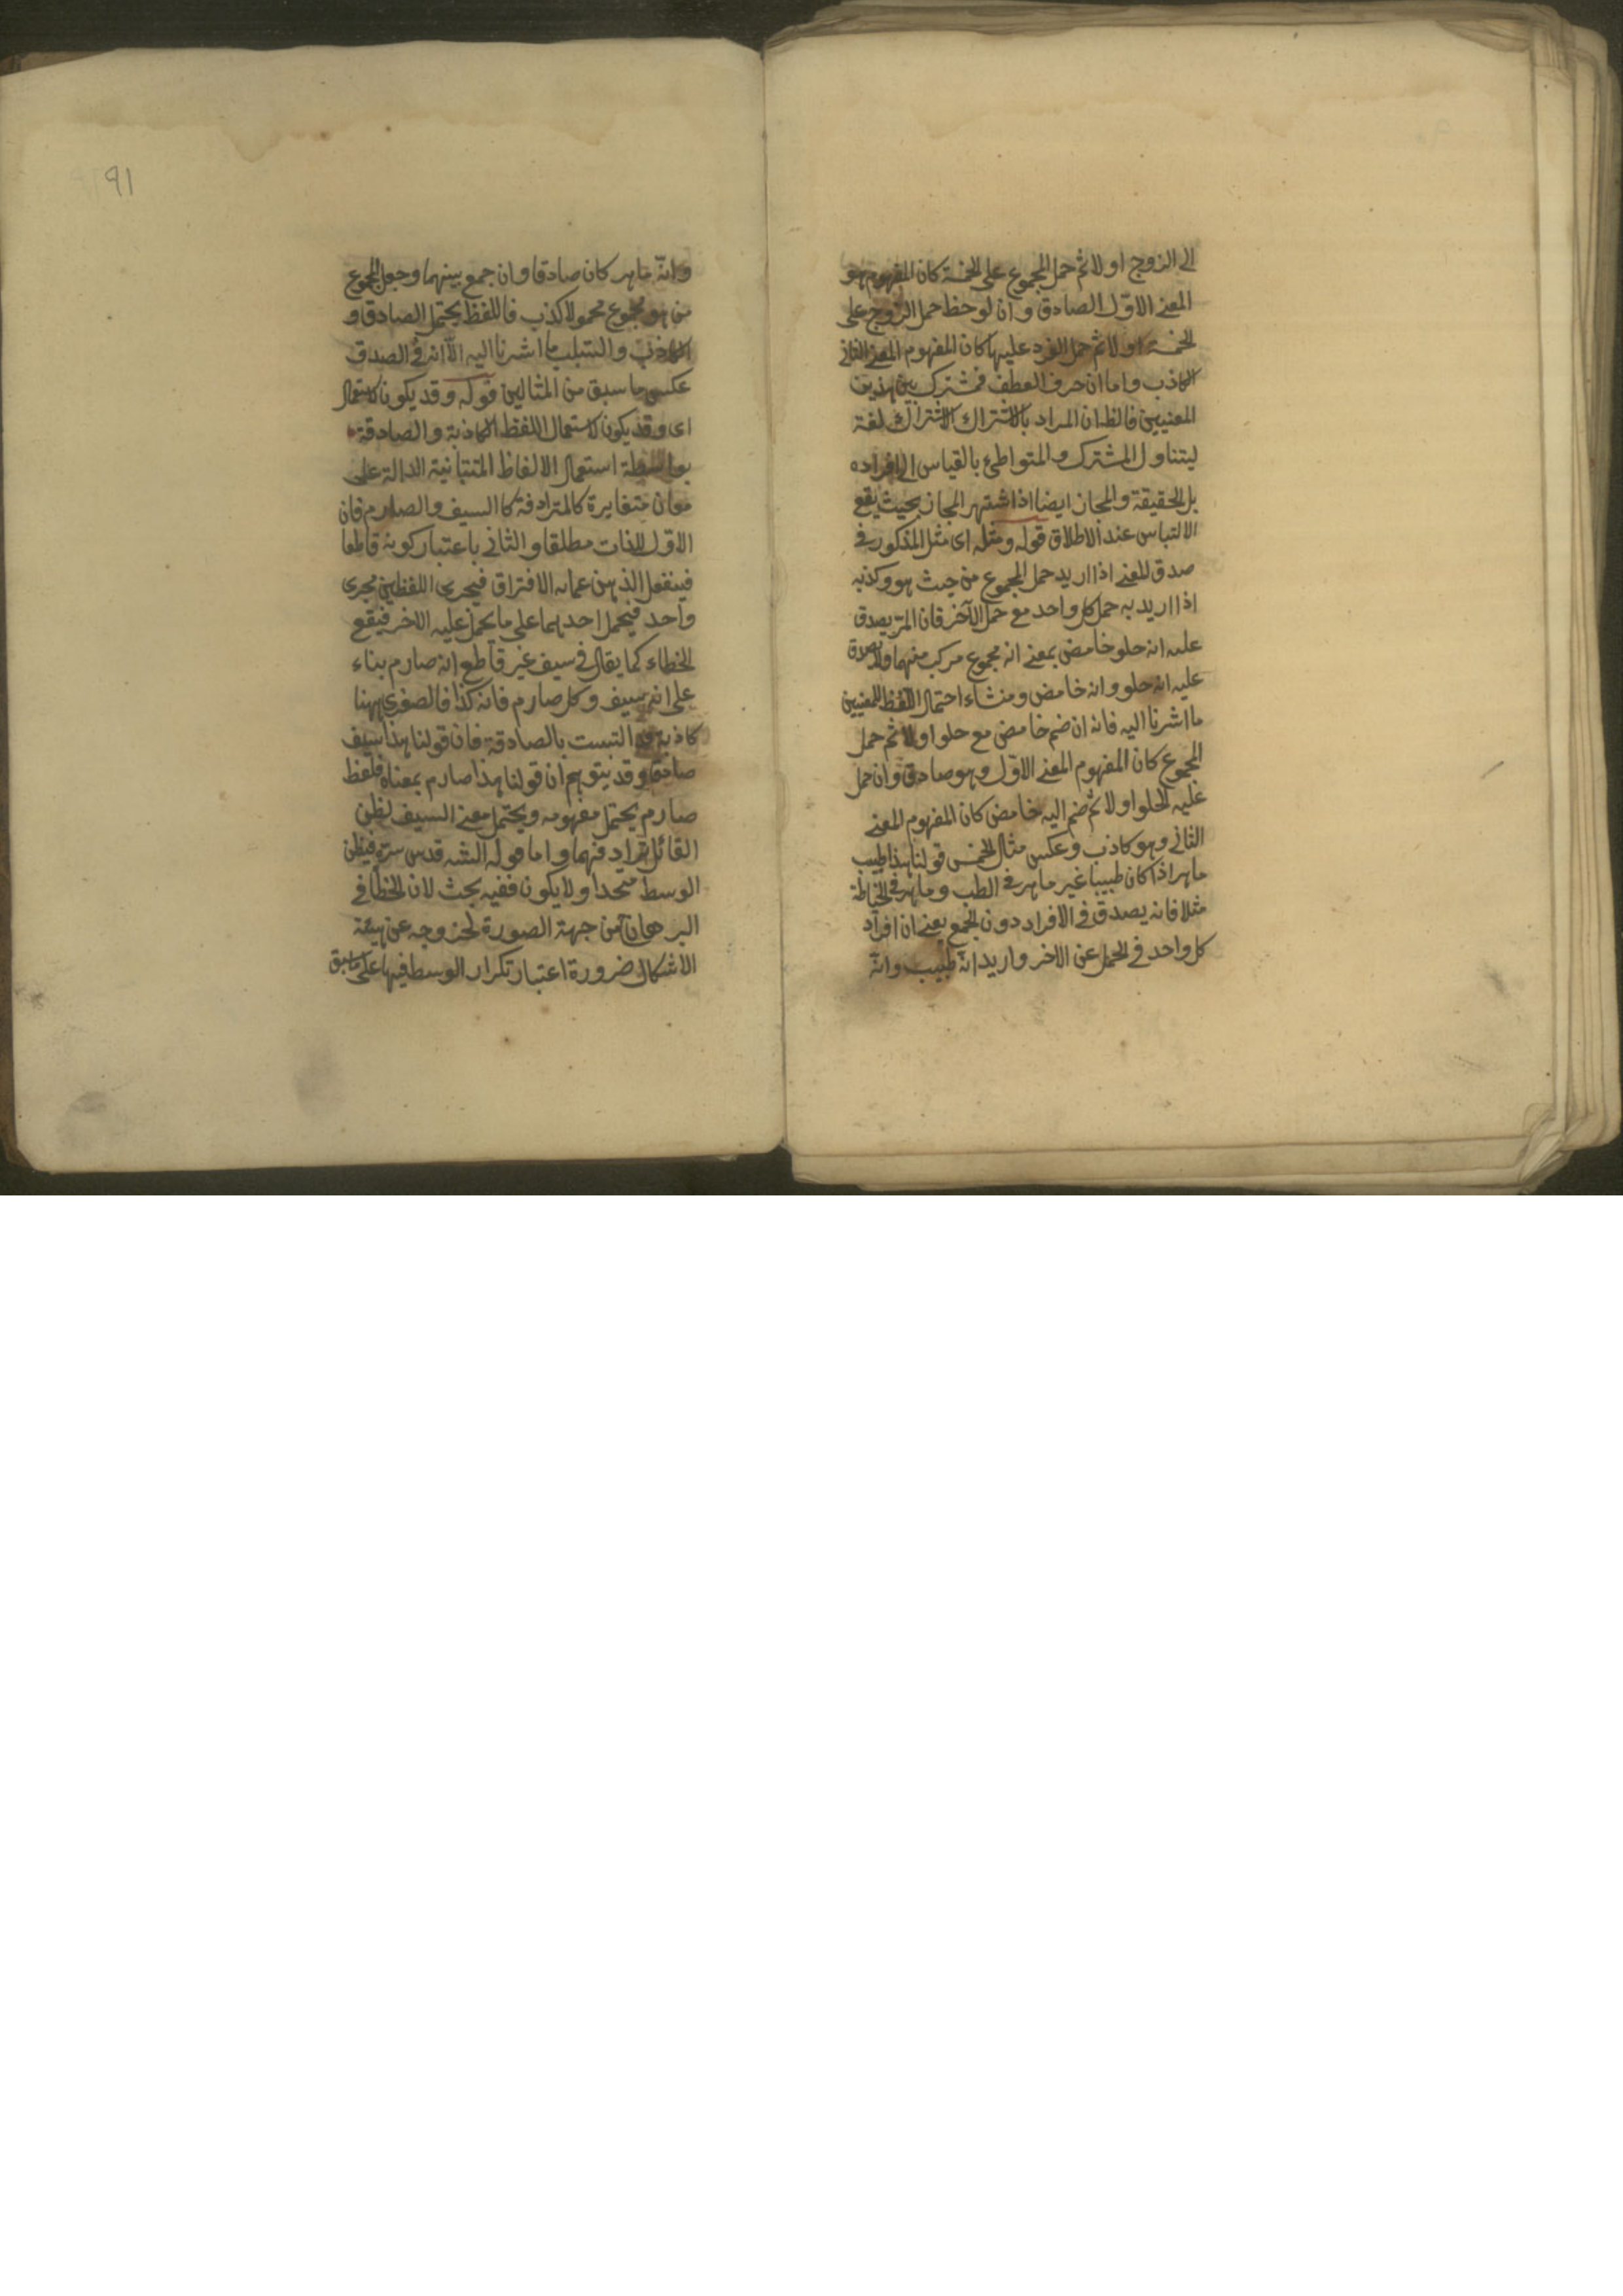 الى الزوج اولا ثم حمل المجموع على الخمسة كان المفهوم هو
المعنى الاول الصادق وان لوحظ حمل الزوج على
الخمسة اولا ثم حمل الفرد عليها كان المفهوم المعنى الثانى
الكاذب واما ان حرف العطف فمشترك بين هذين
المعنيين فالظ ان المراد بالاشتراك الاشتراك لغة
ليتناول المشترك والمتواطئ بالقياس الى افراده
بل الحقيقة والمجاز ايضا اذا اشتهر المجاز بحيث يقع
الالتباس عند الاطلاق قوله ومثله اى مثل المذكور فى
صدق المعنى اذا اريد حمل المجموع من حيث هو وكذبه
اذا اريد به حمل كل واحد مع حمل الآخر فان المز يصدق
عليه انه حلو حامض بمعنى انه مجموع مركب منهما ولا يصدق
عليه انه حلو وانه حامض ومنشاء احتمال اللفظ للمعنيين
ما اشرنا اليه فانه ان ضم حامض مع حلو اولا ثم حمل
المجموع كان المفهوم المعنى الاول وهو صادق وان حمل
عليه الحلو اولا ثم ضم اليه حامض كان المفهوم المعنى
الثانى وهو كاذب وعكس مثال الخمس قولنا هذا طبيب
ماهر اذا كان طبيبا غير ماهر فى الطب وماهر فى الخياطة
مثلا فانه يصدق فى الافراد دون الجمع يعنى ان افراد
كل واحد فى الحمل عن الاخر واريد انه طبيب وانه
وانه ماهر كان صادقا وان جمع بينهما وجعل المجموع
من هو مجموع محمولا كذب فاللفظ يحتمل الصادق و
الكاذب والسبب ما اشرنا اليه الا انه فى الصدق
عكس ما سبق من المثالين قوله وقد يكون لاستعمال
اى وقد يكون لاستعمال اللفظ الكاذبة والصادقة
بواسطة استعمال الالفاظ المتباينة الدالة على
معان متغايرة كالمترادفة كالسيف والصارم فان
الاول للذات مطلقا والثانى باعتبار كونه قاطعا
فيغفل الذهن عما به الافتراق فيجرى اللفظين مجرى
واحد فيحمل احدهما على ما يحمل عليه الاخر فيقع
الخطاء كما يقال فى سيف غير قاطع انه صارم بناء
على انه سيف وكل صارم فانه كذا فالصغرى ههنا
كاذبة قد التبست بالصادقة فان قولنا هذا سيف
صادق وقد يتوهم ان قولنا هذا صارم بمعناه فلفظ
صارم يحتمل مفهومه ويحتمل معنى السيف لظن
القائل ترادفهما واما قوله الشه قدس سره فيظن
الوسط متحدا ولا يكون ففيه بحث لان الخطأ فى
البرهان من جهة الصورة لخروجه عن هيئة
الاشكال ضرورة اعتبار تكرار الوسط فيها على ما سبق
٩١